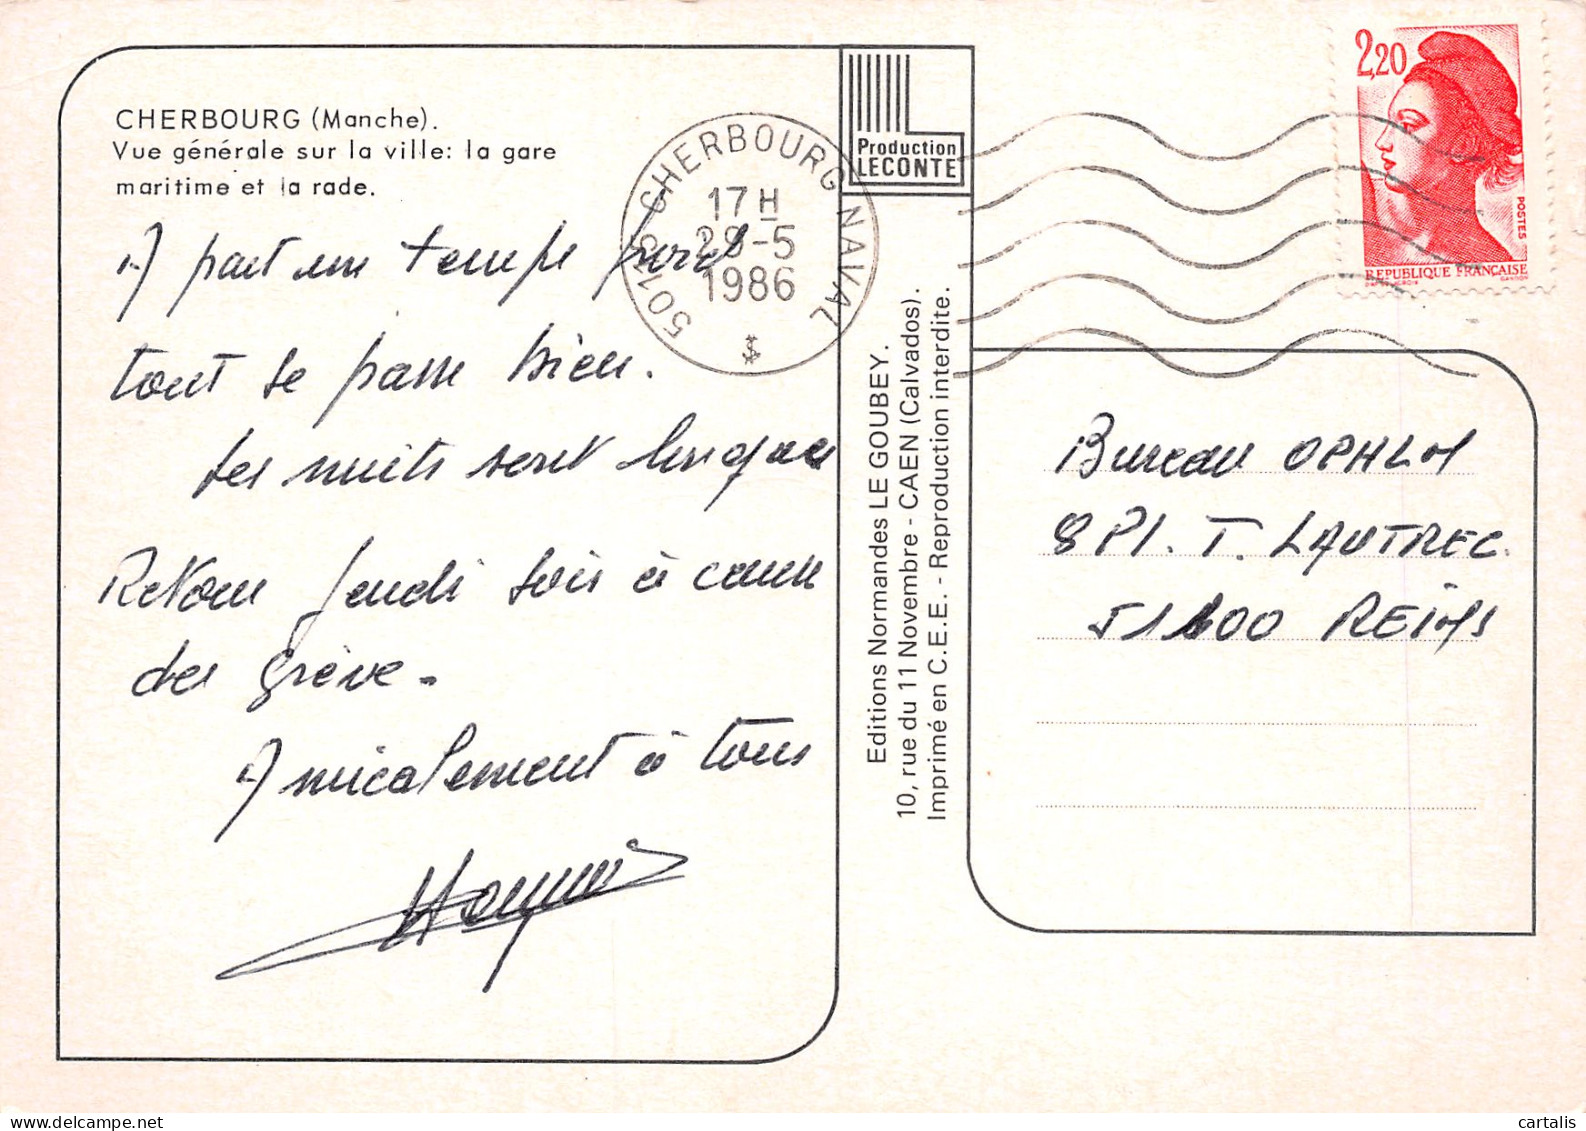 CHERBOURG (Manche).
Vue générale sur la ville: la gare
maritime et la rade.
A part un temps froid
tout se passe bien.
Les nuits sont longues
Retour Jeudi soir à cause
des Grève.
Amicalement à tous
Production
LECONTE
CHERBOURG NAVAL
17 H
28-5
1986
Editions Normandes LE GOUBEY.
10, rue du 11 Novembre - CAEN (Calvados).
Imprimé en C.E.E. - Reproduction interdite.
2,20
POSTES
REPUBLIQUE FRANÇAISE
Bureau OPHLM
8 Pl. T. LAUTREC
51100 REIMS
cartalis